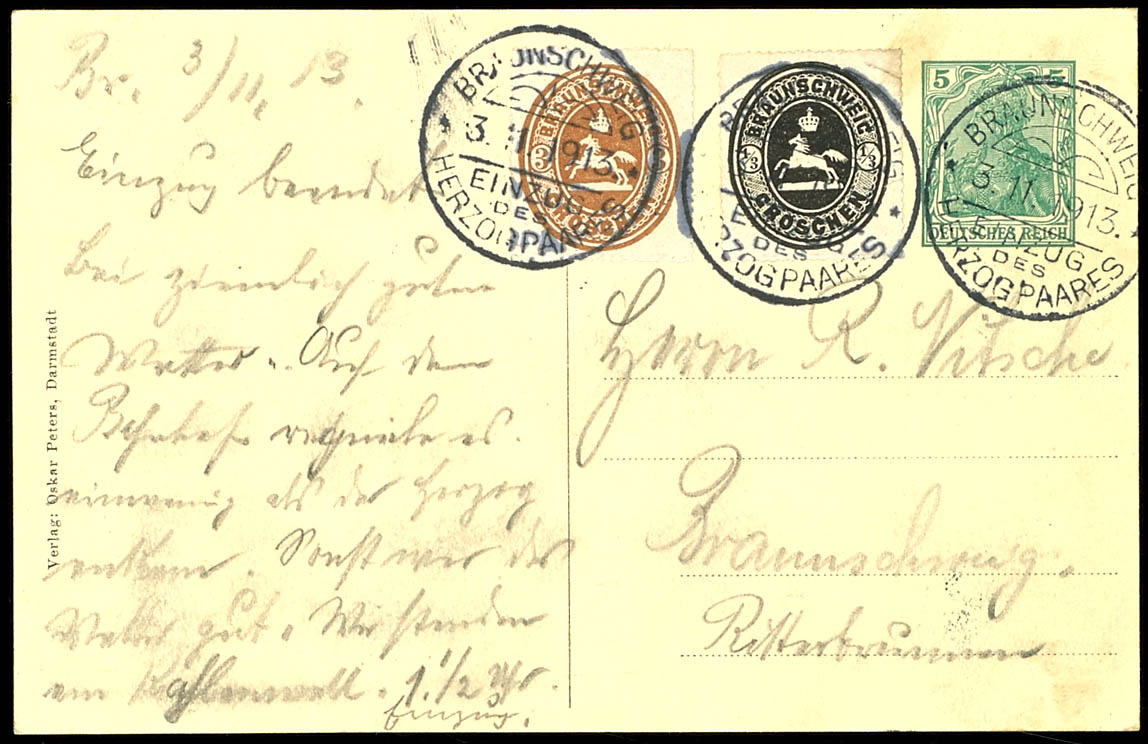 Br. 3/11. 13.
Einzug beendet
bei ziemlich guten
Wetter. Auf dem
Bahnhof regnete es
ein wenig als der Herzog
ankam. Sonst war das
Wetter gut. Wir standen
am 1 1/2 Uhr.
Einzug.
Verlag: Oskar Peters, Darmstadt
BRAUNSCHWEIG
3. 11. 1913.
EINZUG
DES
HERZOGPAARES
BRAUNSCHWEIG
3 3
BRAUNSCHWEIG
1/3 1/3
GROSCHEN
EINZUG
DES
HERZOGPAARES
5 5
DEUTSCHES REICH
BRAUNSCHWEIG
3. 11. 1913.
EINZUG
DES
HERZOGPAARES
Herrn R. Nitsche
Braunschweig.
Ritterbrunnen